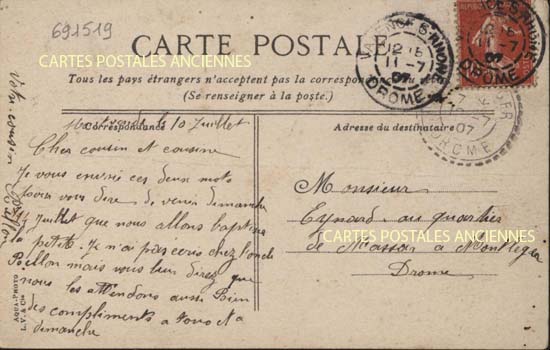 691519
CARTE POSTALE
CARTES POSTALES ANCIENNES
Tous les pays étrangers n'acceptent pas la correspondance au
(Se renseigner à la poste.)
VALENCE S RHONE
12 15
11 - 7
07
DROME
VALENCE S RHONE
11 - 7
07
DROME
07
DROME
Correspondance
le 10 Juillet
Cher cousin et cousine
Je vous envoie ces deux mots
pour vous dire de venir dimanche
Juillet que nous allons baptise
la petite. Je n'ai pas ecris chez l'oncle
Billon mais vous leur direz que
nous les attendons aussi Bien
des compliments a tous
dimanche
Votre cousin
AQUA-PHOTO
L.V. & Cie
Adresse du destinataire
Monsieur
Eynard au quartier
CARTES POSTALES ANCIENNES
de Massas a
Drome